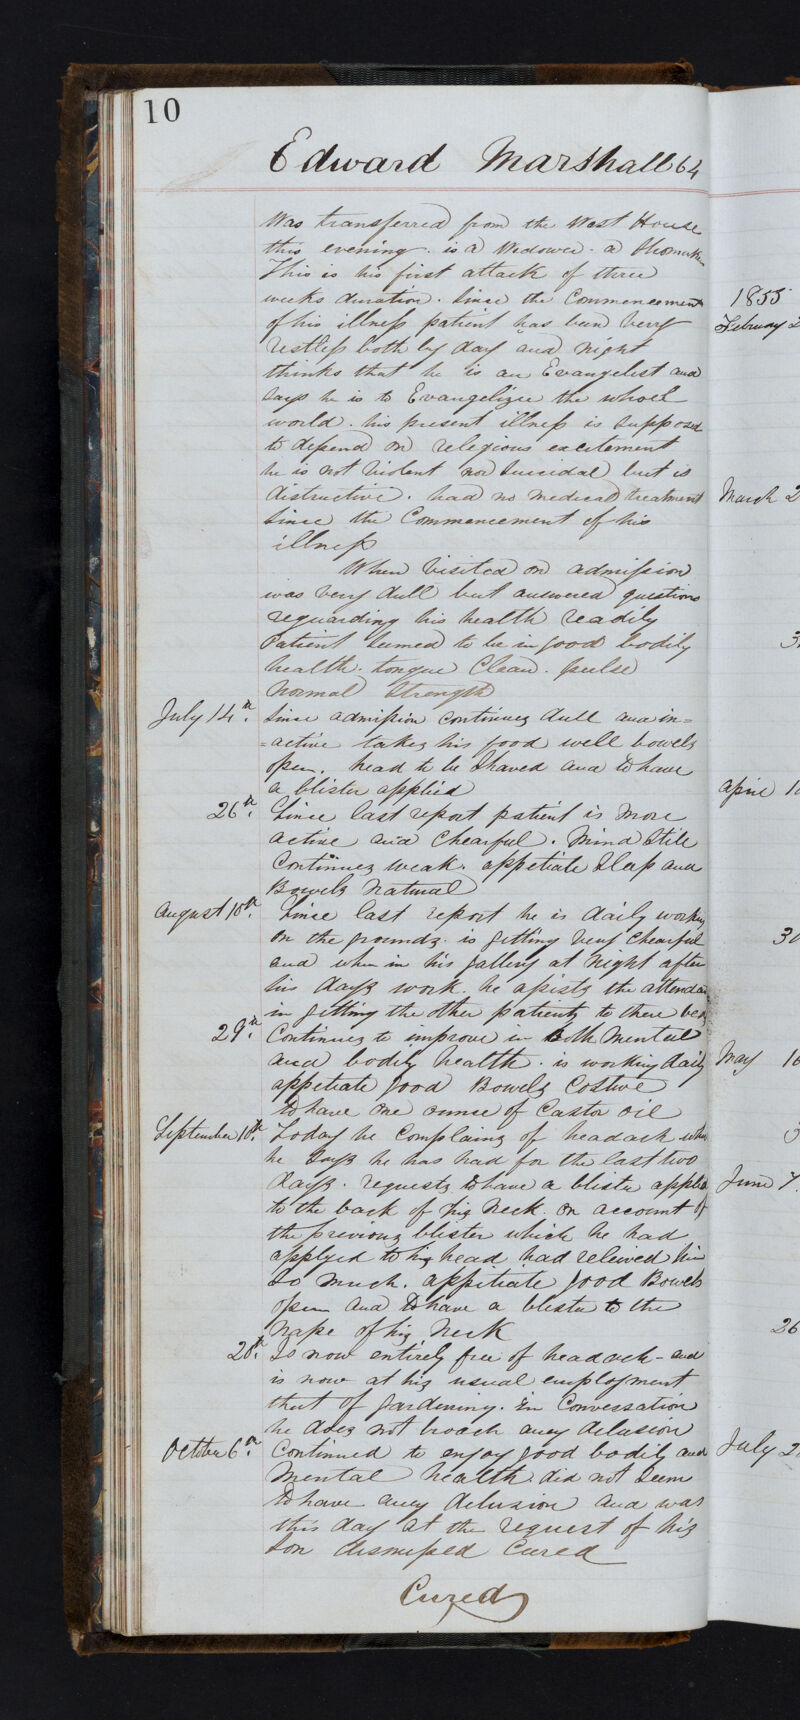 10
Edward Marshall 64
Was transferred from the West House
this evening. is a Widower. a Shomaker
This is his first attack of three
weeks duration. Since the Commencement
of his illness patient has been verry
restless both by day and night
thinks that he is an Evangelist and
says he is to Evangelize the whoel
world. his present illness is supposed
to depend on relegious excitement
he is not violent nor Suicidal but is
distructive. had no medical treatment
Since the Commencement of his
illness
When visited on admission
was very dull but answered questions
reguarding his health readily
Patient seemed to be in good bodily
health. tongue Clean. pulse
Normal Strength
July 14th. Since admission continues dull and in=
=active takes his food well bowels
open. head to be Shaved and to have
a blister applied
26th. Since last report patient is more
active and chearful. Mind Still
Continues weak. appetiate Sleep and
Bowels Natural
August 10th. Since last report he is daily working
on the grounds. is getting very chearful
and when in his gallery at Night after
his days work. he assists the attendan
in getting the other patients to there beds
29th. Continues to improve in both Mental
and bodily health. is working daily
appetiate good Bowels Costive
to have one ounce of Castor oil
September 10th. Today he Complains of headach which
he Says he has had for the last two
days. requests to have a blister applied
to the back of his Neck. on account of
the previous blister which he had
applyed to his head had releived him
So much. appetiate good Bowels
open and to have a blister to the
Nape of his Neck
20th. Is now entirely free of headach - and
is now at his usual employment
that of gardening. in Conversation
he does not broach aney delusion
October 6th. Continued to enjoy good bodily and
Mental health. did not Seem
to have aney delusion and was
this day at the request of his
Son dismissed Cured
Cured
1855
February 2
March 2
3
April 1
30
May 10
June 7.
26
July 2